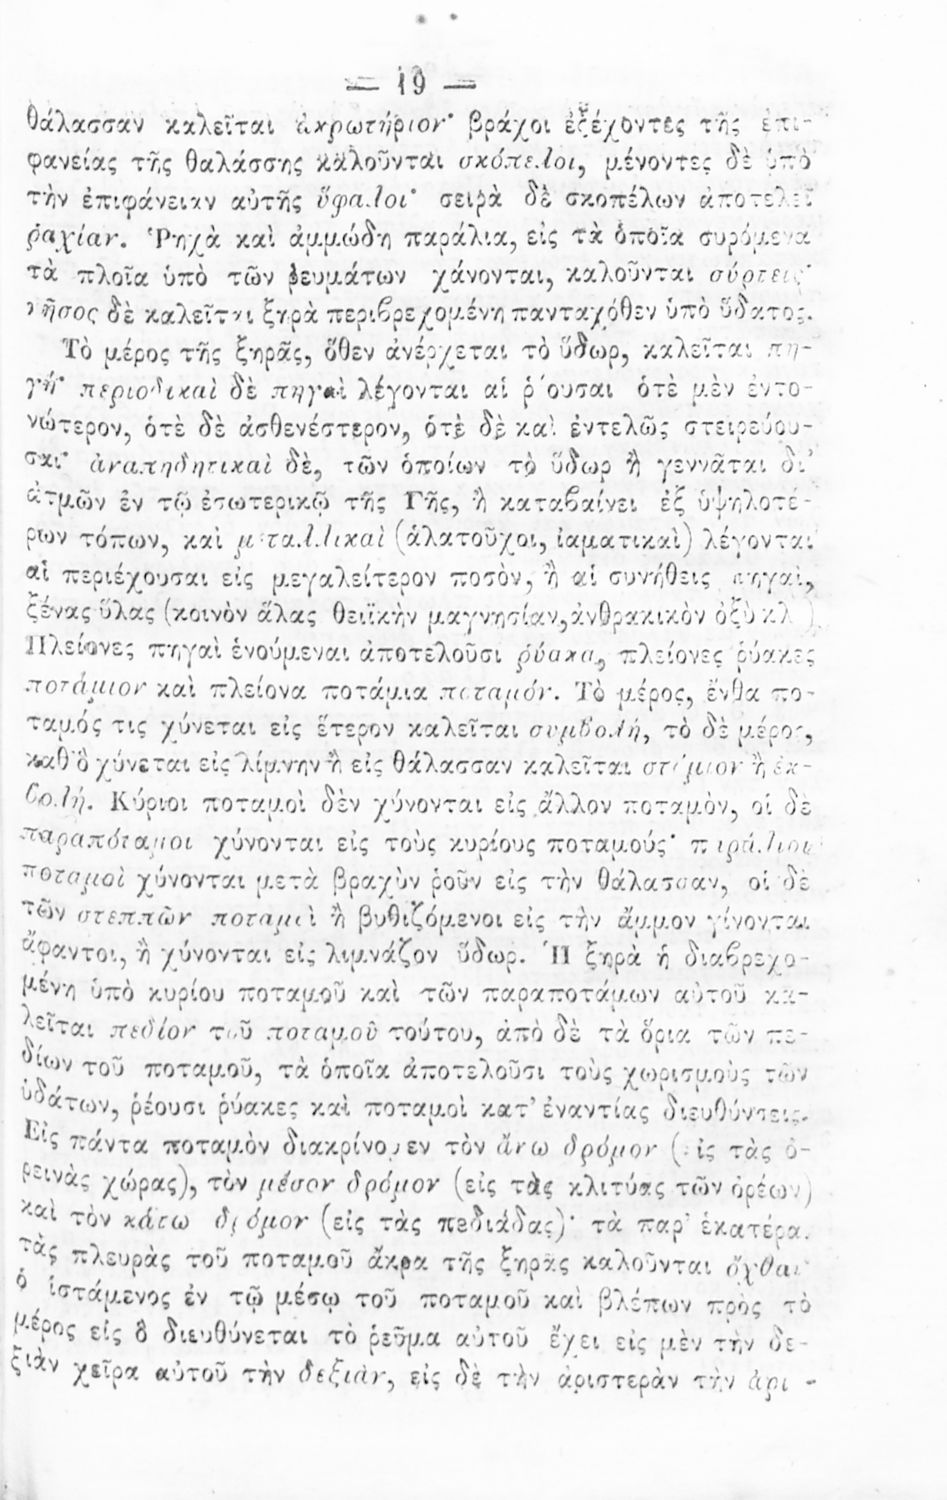 — 19 —
θάλασσαν καλεῖται ἀκρωτήριον· βράχοι ἐξέχοντες τῆς ἐπι-
φανείας τῆς θαλάσσης καλοῦνται σκόπελοι, μένοντες δὲ ὑπὸ
τὴν ἐπιφάνειαν αὐτῆς ὕφαλοι· σειρὰ δὲ σκοπέλων ἀποτελεῖ
ῥαχίαν. Ῥηχὰ καὶ ἀμμώδη παράλια, εἰς τὰ ὁποῖα συρόμενα
τὰ πλοῖα ὑπὸ τῶν ῥευμάτων χάνονται, καλοῦνται σύρτεις·
νῆσος δὲ καλεῖται ξηρὰ περιβρεχομένη πανταχόθεν ὑπὸ ὕδατος.
Τὸ μέρος τῆς ξηρᾶς, ὅθεν ἀνέρχεται τὸ ὕδωρ, καλεῖται πη-
γή· περιοδικαὶ δὲ πηγαὶ λέγονται αἱ ῥέουσαι ὁτὲ μὲν ἐντο-
νώτερον, ὁτὲ δὲ ἀσθενέστερον, ὁτὲ δὲ καὶ ἐντελῶς στειρεύου-
σαι· ἀναπηδητικαὶ δὲ, τῶν ὁποίων τὸ ὕδωρ ἢ γεννᾶται δι'
ἀτμῶν ἐν τῷ ἐσωτερικῷ τῆς Γῆς, ἢ καταβαίνει ἐξ ὑψηλοτέ-
ρων τόπων, καὶ μεταλλικαὶ (ἁλατοῦχοι, ἰαματικαὶ) λέγονται
αἱ περιέχουσαι εἰς μεγαλείτερον ποσὸν, ἢ αἱ συνήθεις πηγαὶ,
ξένας ὕλας (κοινὸν ἅλας θειϊκὴν μαγνησίαν, ἀνθρακικὸν ὀξὺ κλ )
Πλείονες πηγαὶ ἑνούμεναι ἀποτελοῦσι ῥύακα, πλείονες ῥύακες
ποτάμιον καὶ πλείονα ποτάμια ποταμόν. Τὸ μέρος, ἔνθα πο-
ταμός τις χύνεται εἰς ἕτερον καλεῖται συμβολή, τὸ δὲ μέρος,
καθ' ὃ χύνεται εἰς λίμνην ἢ εἰς θάλασσαν καλεῖται στόμιον ἢ ἐκ-
βολή. Κύριοι ποταμοὶ δὲν χύνονται εἰς ἄλλον ποταμὸν, οἱ δὲ
παραπόταμοι χύνονται εἰς τοὺς κυρίους ποταμούς· παράλιοι
ποταμοὶ χύνονται μετὰ βραχὺν ῥοῦν εἰς τὴν θάλασσαν, οἱ δὲ
τῶν στεππῶν ποταμοὶ ἢ βυθιζόμενοι εἰς τὴν ἄμμον γίνονται
ἄφαντοι, ἢ χύνονται εἰς λιμνάζον ὕδωρ. Ἡ ξηρὰ ἡ διαβρεχο-
μένη ὑπὸ κυρίου ποταμοῦ καὶ τῶν παραποτάμων αὐτοῦ κα-
λεῖται πεδίον τοῦ ποταμοῦ τούτου, ἀπὸ δὲ τὰ ὅρια τῶν πε-
δίων τοῦ ποταμοῦ, τὰ ὁποῖα ἀποτελοῦσι τοὺς χωρισμοὺς τῶν
ὑδάτων, ῥέουσι ῥύακες καὶ ποταμοὶ κατ' ἐναντίας διευθύνσεις.
Εἰς πάντα ποταμὸν διακρίνομεν τὸν ἄνω δρόμον (εἰς τὰς ὀ-
ρεινὰς χώρας), τὸν μέσον δρόμον (εἰς τὰς κλιτύας τῶν ὀρέων)
καὶ τὸν κάτω δρόμον (εἰς τὰς πεδιάδας)· τὰ παρ' ἑκατέρα
τὰς πλευρὰς τοῦ ποταμοῦ ἄκρα τῆς ξηρᾶς καλοῦνται ὄχθαι·
ὁ ἱστάμενος ἐν τῷ μέσῳ τοῦ ποταμοῦ καὶ βλέπων πρὸς τὸ
μέρος εἰς ὃ διευθύνεται τὸ ῥεῦμα αὐτοῦ ἔχει εἰς μὲν τὴν δε-
ξιὰν χεῖρα αὐτοῦ τὴν δεξιὰν, εἰς δὲ τὴν ἀριστερὰν τὴν ἀρι -